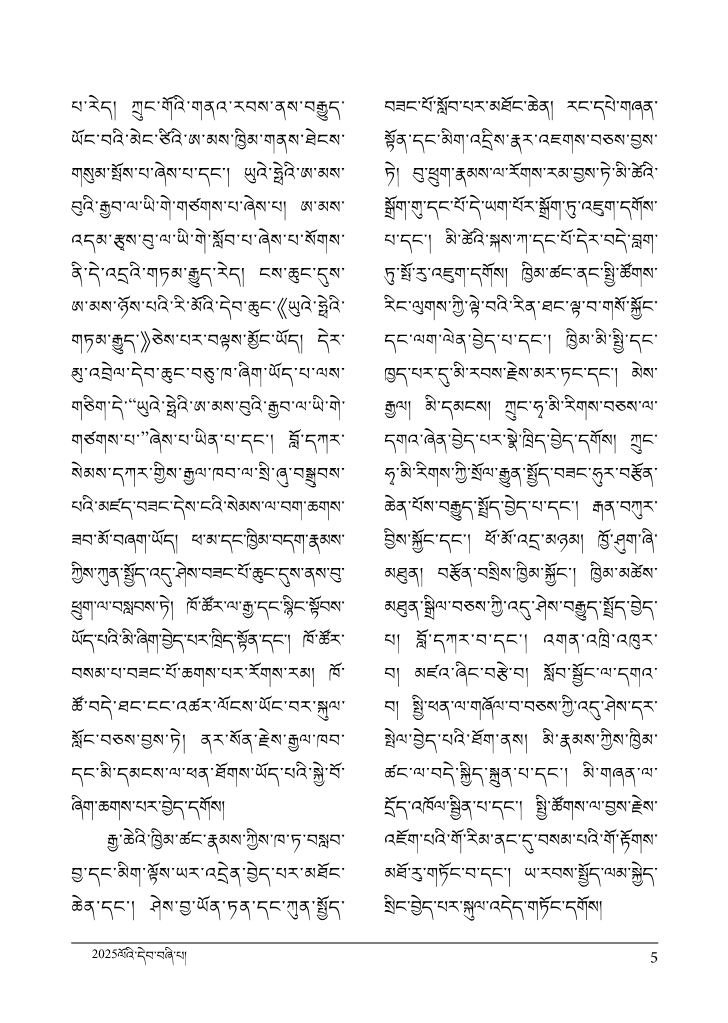 པ་རེད། ཀྲུང་གོའི་གནའ་རབས་ནས་བརྒྱུད་
ཡོང་བའི་མེང་ཙིའི་ཨ་མས་ཁྱིམ་གནས་ཐེངས་
གསུམ་སྤོས་པ་ཞེས་པ་དང་། ཡུའེ་ཧྥེའི་ཨ་མས་
བུའི་རྒྱབ་ལ་ཡི་གེ་གཙགས་པ་ཞེས་པ། ཨ་མས་
འདམ་རྩྭས་བུ་ལ་ཡི་གེ་སློབ་པ་ཞེས་པ་སོགས་
ནི་དེ་འདྲའི་གཏམ་རྒྱུད་རེད། ངས་ཆུང་དུས་
ཨ་མས་ཉོས་པའི་རི་མོའི་དེབ་ཆུང་《ཡུའེ་ཧྥེའི་
གཏམ་རྒྱུད་》ཅེས་པར་བལྟས་མྱོང་ཡོད། དེར་
མུ་འབྲེལ་དེབ་ཆུང་བཅུ་ཁ་ཞིག་ཡོད་པ་ལས་
གཅིག་དེ་“ཡུའེ་ཧྥེའི་ཨ་མས་བུའི་རྒྱབ་ལ་ཡི་གེ་
གཙགས་པ་”ཞེས་པ་ཡིན་པ་དང་། བློ་དཀར་
སེམས་དཀར་གྱིས་རྒྱལ་ཁབ་ལ་སྲི་ཞུ་བསྒྲུབས་
པའི་མཛད་བཟང་དེས་ངའི་སེམས་ལ་བག་ཆགས་
ཟབ་མོ་བཞག་ཡོད། ཕ་མ་དང་ཁྱིམ་བདག་རྣམས་
ཀྱིས་ཀུན་སྤྱོད་འདུ་ཤེས་བཟང་པོ་ཆུང་དུས་ནས་བུ་
ཕྲུག་ལ་བསླབས་ཏེ། ཁོ་ཚོར་ལ་རྒྱ་དང་སྙིང་སྟོབས་
ཡོད་པའི་མི་ཞིག་བྱེད་པར་ཁྲིད་སྟོན་དང་། ཁོ་ཚོར་
བསམ་པ་བཟང་པོ་ཆགས་པར་རོགས་རམ། ཁོ་
ཚོ་བདེ་ཐང་ངང་འཚར་ལོངས་ཡོང་བར་སྐུལ་
སློང་བཅས་བྱས་ཏེ། ནར་སོན་རྗེས་རྒྱལ་ཁབ་
དང་མི་དམངས་ལ་ཕན་ཐོགས་ཡོད་པའི་སྐྱེ་བོ་
ཞིག་ཆགས་པར་བྱེད་དགོས།
རྒྱ་ཆེའི་ཁྱིམ་ཚང་རྣམས་ཀྱིས་ཁ་ཏ་བསླབ་
བྱ་དང་མིག་ལྟོས་ཡར་འདྲེན་བྱེད་པར་མཐོང་
ཆེན་དང་། ཤེས་བྱ་ཡོན་ཏན་དང་ཀུན་སྤྱོད་
བཟང་པོ་སློབ་པར་མཐོང་ཆེན། རང་དཔེ་གཞན་
སྟོན་དང་མིག་འདྲིས་རྣར་འཇགས་བཅས་བྱས་
ཏེ། བུ་ཕྲུག་རྣམས་ལ་རོགས་རམ་བྱས་ཏེ་མི་ཚེའི་
སྒྲོག་གུ་དང་པོ་དེ་ཡག་པོར་སྒྲོག་ཏུ་འཇུག་དགོས་
པ་དང་། མི་ཚེའི་སྐས་ཀ་དང་པོ་དེར་བདེ་བླག་
ཏུ་སྤོ་རུ་འཇུག་དགོས། ཁྱིམ་ཚང་ནང་སྤྱི་ཚོགས་
རིང་ལུགས་ཀྱི་ལྟེ་བའི་རིན་ཐང་ལྟ་བ་གསོ་སྐྱོང་
དང་ལག་ལེན་བྱེད་པ་དང་། ཁྱིམ་མི་སྤྱི་དང་
ཁྱད་པར་དུ་མི་རབས་རྗེས་མར་ཏང་དང་། མེས་
རྒྱལ། མི་དམངས། ཀྲུང་ཧྭ་མི་རིགས་བཅས་ལ་
དགའ་ཞེན་བྱེད་པར་སྣེ་ཁྲིད་བྱེད་དགོས། ཀྲུང་
ཧྭ་མི་རིགས་ཀྱི་སྲོལ་རྒྱུན་སྤྱོད་བཟང་ཧུར་བརྩོན་
ཆེན་པོས་བརྒྱུད་སྤྲོད་བྱེད་པ་དང་། རྒན་བཀུར་
བྱིས་སྐྱོང་དང་། ཕོ་མོ་འདྲ་མཉམ། ཁྱོ་ཤུག་ཞི་
མཐུན། བརྩོན་བསྲིས་ཁྱིམ་སྐྱོང་། ཁྱིམ་མཚེས་
མཐུན་སྒྲིལ་བཅས་ཀྱི་འདུ་ཤེས་བརྒྱུད་སྤྲོད་བྱེད་
པ། བློ་དཀར་བ་དང་། འགན་འཁྲི་འཁུར་
བ། མཛའ་ཞིང་བརྩེ་བ། སློབ་སྦྱོང་ལ་དགའ་
བ། སྤྱི་ཕན་ལ་གཞོལ་བ་བཅས་ཀྱི་འདུ་ཤེས་དར་
སྤེལ་བྱེད་པའི་ཐོག་ནས། མི་རྣམས་ཀྱིས་ཁྱིམ་
ཚང་ལ་བདེ་སྐྱིད་སྐྲུན་པ་དང་། མི་གཞན་ལ་
དྲོད་འཁོལ་སྦྱིན་པ་དང་། སྤྱི་ཚོགས་ལ་བྱས་རྗེས་
འཇོག་པའི་གོ་རིམ་ནང་དུ་བསམ་པའི་གོ་རྟོགས་
མཐོ་རུ་གཏོང་བ་དང་། ཡ་རབས་སྤྱོད་ལམ་སྐྱེད་
སྲིང་བྱེད་པར་སྐུལ་འདེད་གཏོང་དགོས།
2025ལོའི་དེབ་བཞི་པ།
5